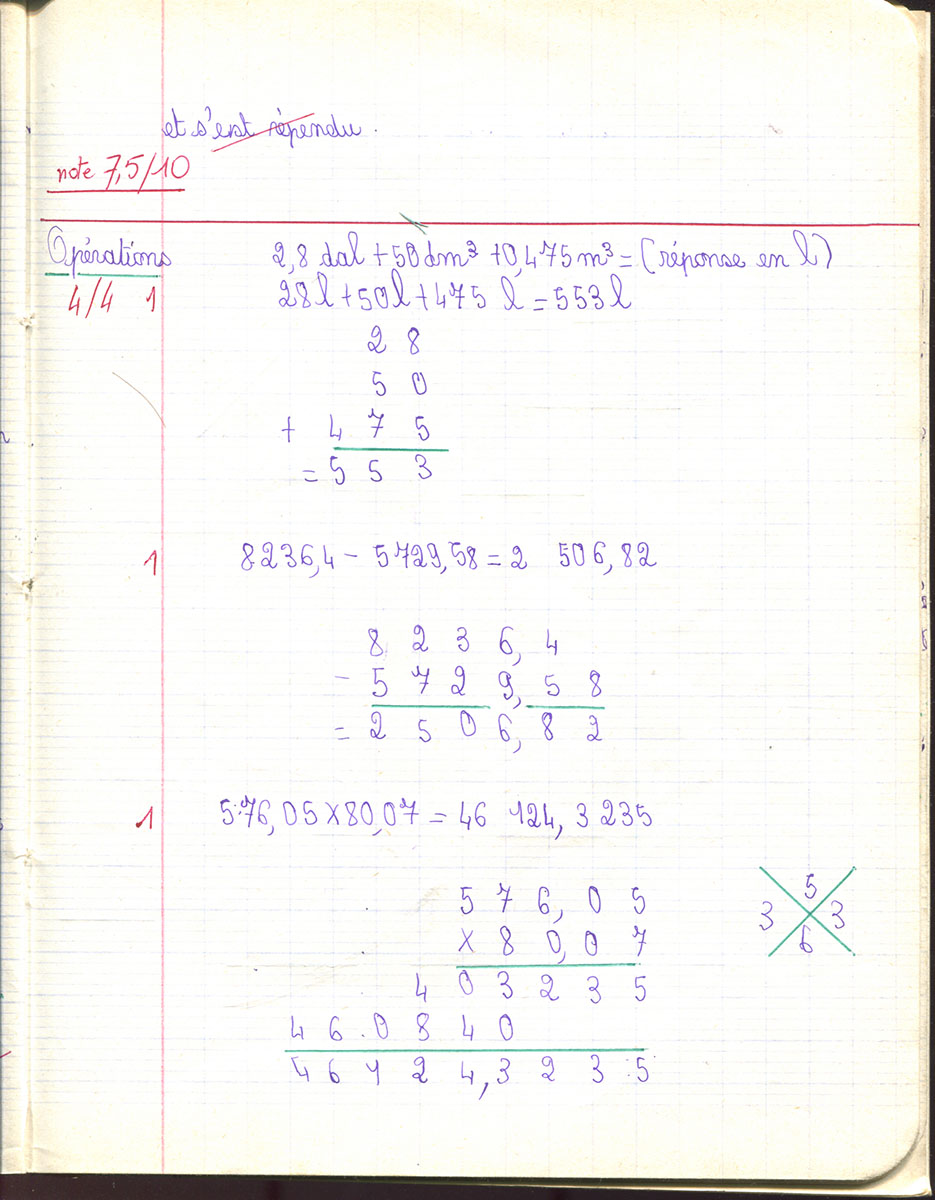 et s'est répendu.
note 7,5/10
Opérations 2,8 dal + 50 dm³ + 0,475 m³ = (réponse en l)
4/4 1 28 l + 50 l + 475 l = 553 l
2 8
5 0
+ 4 7 5
= 5 5 3
1 8236,4 - 5729,58 = 2 506,82
8 2 3 6, 4
- 5 7 2 9, 5 8
= 2 5 0 6, 8 2
1 576,05 x 80,07 = 46 124,3235
5 7 6, 0 5
x 8 0, 0 7
4 0 3 2 3 5
4 6 0 8 4 0
4 6 1 2 4, 3 2 3 5
5
3 3
6